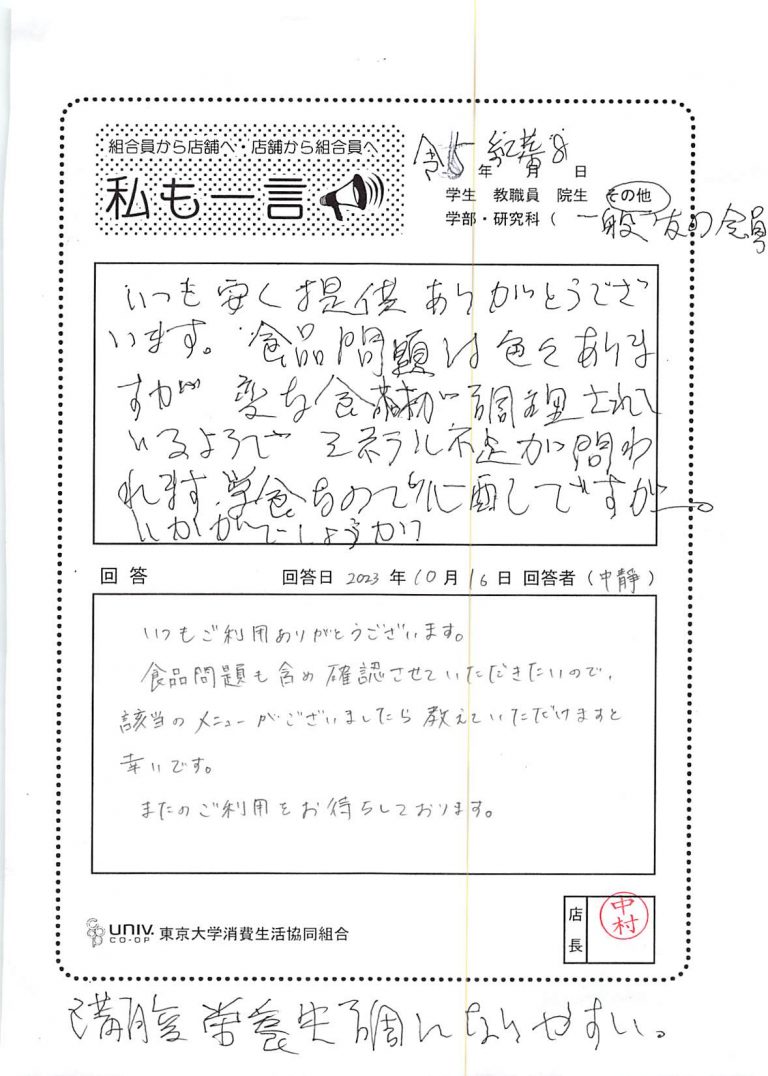 組合員から店舗へ・店舗から組合員へ
私も一言
令5年 月8日
学生 教職員 院生 その他
学部・研究科 ( 一般 友の会員
いつも安く提供ありがとうござ
います。食品問題は色々ありま
すが 変な食材が調理されて
いるようで ミネラル不足が問わ
れます。学食もので心配しですが。
いかがでしょうか?
回答 回答日 2023年10月16日 回答者 (中静)
いつもご利用ありがとうございます。
食品問題も含め確認させていただきたいので、
該当のメニューがございましたら教えていただけますと
幸いです。
またのご利用をお待ちしております。
UNIV. CO-OP 東京大学消費生活協同組合
店長 中村
満腹栄養失調になりやすい。